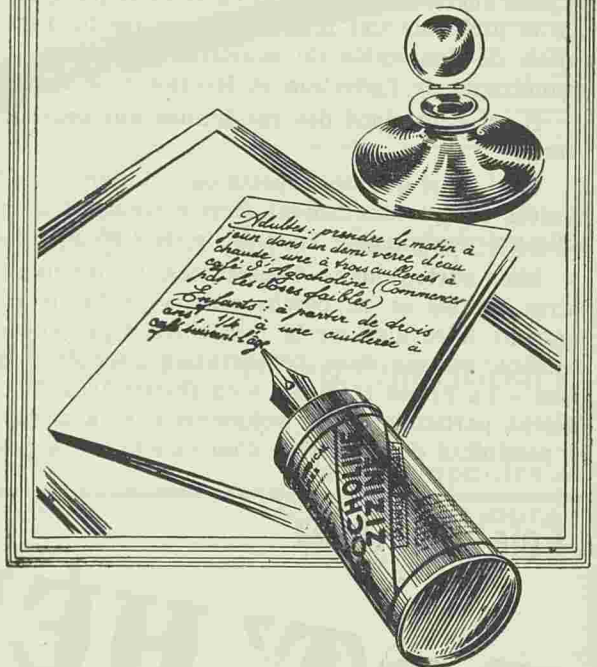 Adultes : prendre le matin à
jeun dans un demi verre d'eau
chaude, une à trois cuillerées à
café d'Agocholine (Commencer
par les doses faibles)
Enfants : à partir de trois
ans, 1/4 à une cuillerée à
café suivant l'âge
OCHOLINE
ZIZINE